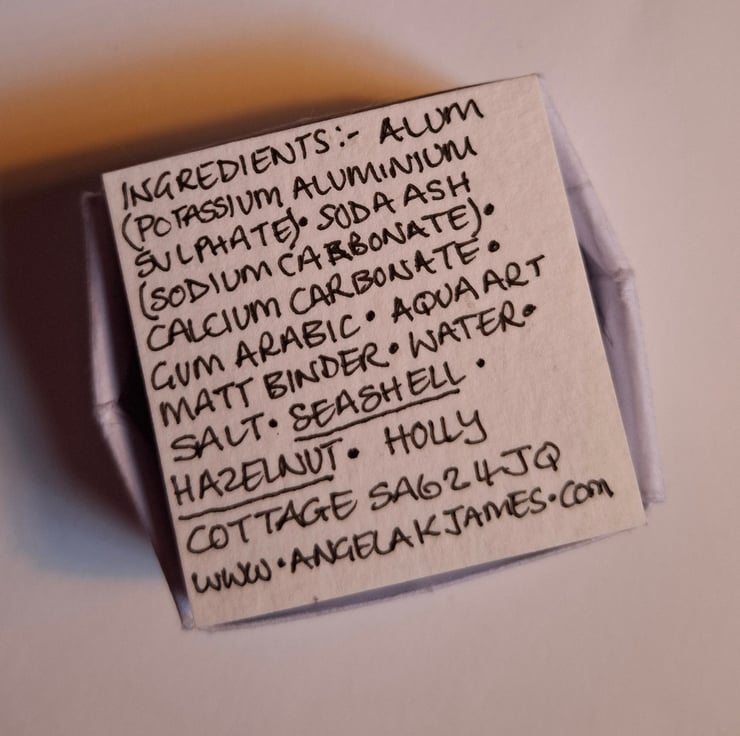 INGREDIENTS:- ALUM
(POTASSIUM ALUMINIUM
SULPHATE)• SODA ASH
(SODIUM CARBONATE)•
CALCIUM CARBONATE•
GUM ARABIC• AQUA ART
MATT BINDER• WATER•
SALT• SEASHELL•
HAZELNUT• HOLLY
COTTAGE SA62 4JQ
WWW•ANGELAKJAMES•COM